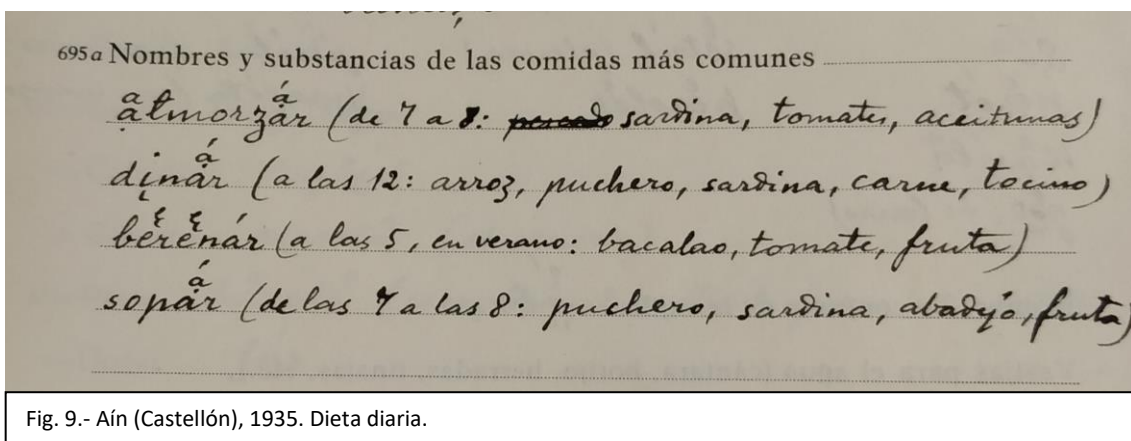 695a Nombres y substancias de las comidas más comunes
almorzár (de 7 a 8: pescado sardina, tomates, aceitunas)
dinár (a las 12: arroz, puchero, sardina, carne, tocino)
berenár (a las 5, en verano: bacalao, tomate, fruta)
sopár (de las 7 a las 8: puchero, sardina, abadejo, fruta)
Fig. 9.- Aín (Castellón), 1935. Dieta diaria.